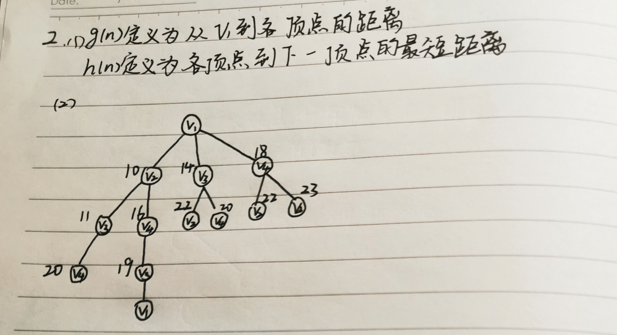 2.(1)g(n)定义为从V1到各顶点的距离
h(n)定义为各顶点到下一顶点的最短距离
(2)
V1
10 V2 14 V3 18 V4
11 V3 16 V4 22 V2 20 V4 22 23
20 V4 19 V3
V1